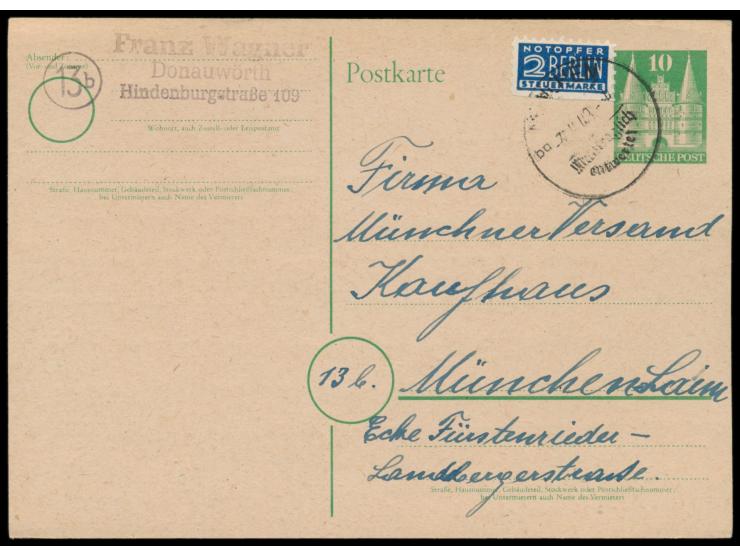 Absender:
(Vor- und Zuname)
13b
Franz Wagner
Donauwörth
Hindenburgstraße 109
Wohnort, auch Zustell- oder Leitpostamt
Straße, Hausnummer, Gebäudeteil, Stockwerk oder Postschließfachnummer;
bei Untermietern auch Name des Vermieters
Postkarte
NOTOPFER
2 BERLIN
STEUERMARKE
10
DEUTSCHE POST
nachträglich
entwertet
Firma
Münchner Versand
Kaufhaus
13b. München Laim
Ecke Fürstenrieder-
Landsbergerstrasse.
Straße, Hausnummer, Gebäudeteil, Stockwerk oder Postschließfachnummer;
bei Untermietern auch Name des Vermieters